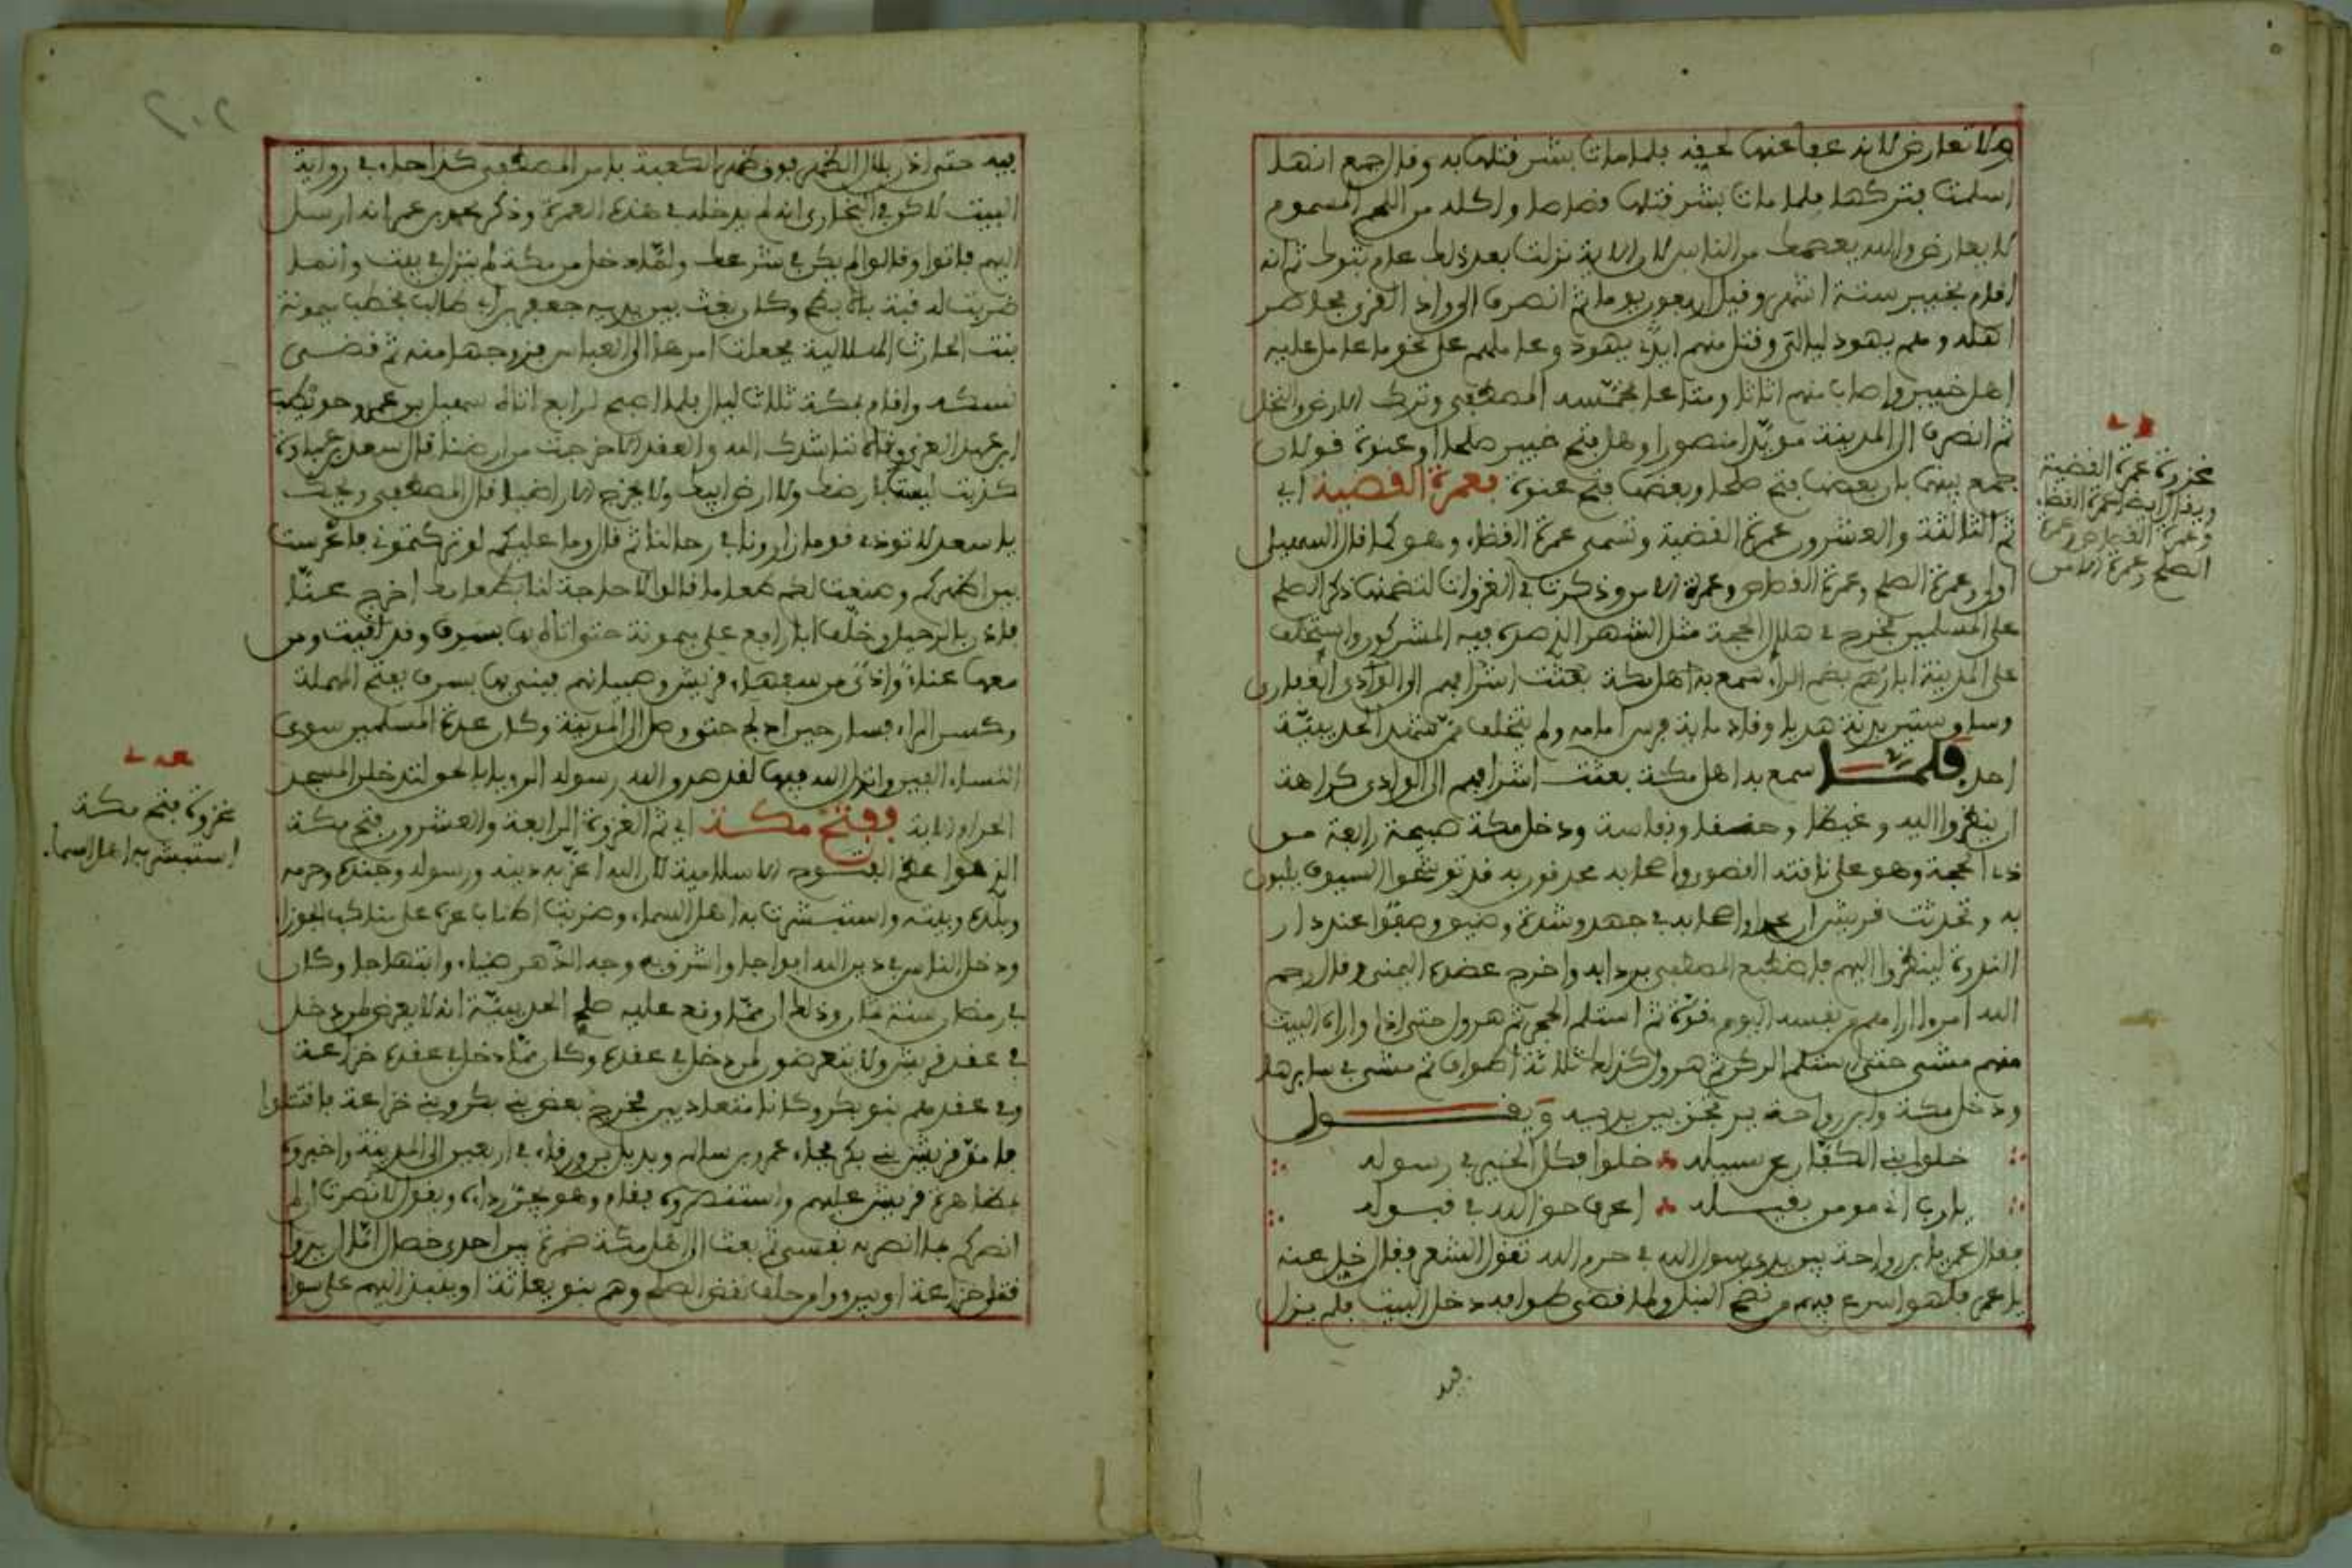 ولا تعارض لانه عفا عنها لحقه فلما مات بشر قتلها به وقال جمع انها
اسلمت فتركها فلما مات بشر قتلها قصاصا واكله من اللحم المسموم
لا يعارض والله يعصمك من الناس لان الاية نزلت بعد ذلك عام تبوك ثم انه
اقام بخيبر ستة اشهر وقيل اربعون يوما ثم انصرف الى وادي القرى فحاصر
اهله ومعهم يهود ليالي وقتل منهم يهود وعاملهم على نحو ما عامل عليه
اهل خيبر واصاب منهم اثاثا ومتاعا فخمسه المصطفى وترك الارض والنخل
ثم انصرف الى المدينة مويدا منصورا وهل فتح خيبر صلحا او عنوة قولان
جمع بينهما بان بعضها فتح صلحا وبعضها فتح عنوة فعمرة القضية اي
ثم الثالثة والعشرون عمرة القضية وتسمى عمرة القضاء وهو كما قال السهيلي
اولى وعمرة الصلح وعمرة القصاص وعمرة الامن وذكرت في الغزوات لتضمنها ذكر الصلح
على المسلمين فخرج في هلال الحجة مثل الشهر الذي صده فيه المشركون واستخلف
على المدينة ابا رهم بضم الراء سمع به اهل مكة بعثت اشرافهم الى الوادي الغفاري
وساق ستين بدنة هديا وقاد ماية فرس امامه ولم يتخلف ممن شهد الحديبية
احد فلما سمع به اهل مكة بعثت اشرافهم الى الوادي كراهة
ان ينظروا اليه وغيظا وحنقا ونفاسة ودخل مكة صبيحة رابعة من
ذي الحجة وهو على ناقته القصوى واصحابه محدقون به قد توشحوا السيوف يلبون
به وتحدثت قريش ان محمدا واصحابه في جهد وشدة وضيق وصفوا عند دار
الندوة لينظروا اليهم فاضطبع المصطفى بردايه واخرج عضده اليمنى وقال رحم
الله امرءا اراهم من نفسه اليوم قوة ثم استلم الحجر ثم هرول حتى اذا واراه البيت
منهم مشى حتى استلم الركن ثم هرول كذلك ثلاثة اطواف ثم مشى في سايرها
ودخل مكة وابن رواحة يرتجز بين يديه ويقول
خلوا بني الكفار عن سبيله خلوا فكل الخير في رسوله
يا رب اني مومن بقيله اعرف حق الله في قبوله
فقال عمر يا ابن رواحة بين يدي رسول الله في حرم الله تقول الشعر فقال خل عنه
يا عمر فلهو اسرع فيهم من نضح النبل ولما قضى طوافه دخل البيت فلم يزل
فيه
غزوة عمرة القضية
ويقال ايضا عمرة القضاء
وعمرة القصاص وعمرة
الصلح وعمرة الامن
٢٠٢
فيه حتى اذن بلال الظهر فوق ظهر الكعبة بامر المصطفى كذا جاء في رواية
البيت لاكن في البخاري انه لم يدخله في هذه العمرة وذكر عمر انه ارسل
اليهم فابوا وقالوا لم يكن في شرطك ولما دخل مكة لم ينزل في بيت وانما
ضربت له قبة بالابطح وكان بعث بين يديه جعفر بن ابي طالب يخطب ميمونة
بنت الحارث الهلالية فجعلت امرها الى العباس فزوجها منه ثم قضى
نسكه واقام بمكة ثلاث ليال فلما اصبح الرابع اتاه سهيل بن عمرو وحويطب
ابن عبد العزى وقالا نناشدك الله والعقد الا خرجت من ارضنا قال سعد بن عبادة
كذبت ليست بارضك ولا ارض ابيك ولا يخرج الا راضيا فقال المصطفى وضحك
يا سعد لا توذي قوما زارونا في رحالنا ثم قال وما عليكم لو تركتموني فاعرست
بين اظهركم وصنعت لكم طعاما قالوا لا حاجة لنا بطعامك اخرج عنا
فاذن بالرحيل وخلف ابا رافع على ميمونة حتى اتاه بها بسرف وقد لقيت ومن
معها عناء واذى من سفهاء قريش وصبيانهم فبنى بها بسرف بفتح المهملة
وكسر الراء فسار حين ادلج حتى وصل الى المدينة وكان عدة المسلمين سوى
النساء الفين وانزل الله فيها لقد صدق الله رسوله الرويا بالحق لتدخلن المسجد
الحرام الاية ففتح مكة اي ثم الغزوة الرابعة والعشرون فتح مكة
الذي هو اعظم الفتوح الاسلامية لان الله اعز به دينه ورسوله وجنده وحرمه
وبلده وبيته واستبشرت به اهل السماء وضربت اطناب عزه على مناكب الجوزا
ودخل الناس في دين الله افواجا واشرق به وجه الدهر ضياء وابتهاجا وكان
في رمضان سنة ثمان وذلك ان مما وقع عليه صلح الحديبية انه لا يعرض لمن دخل
في عقد قريش ولا يتعرضون لمن دخل في عقده وكان مما دخل في عقده خزاعة
وفي عقدهم بنو بكر وكانا متعاديين فخرج بعض بني بكر وبني خزاعة فاقتتلوا
فامد قريش بني بكر فجاء عمرو بن سالم وبديل بن ورقاء في اربعين الى المدينة واخبروه
بمظاهرة قريش عليهم واستنصروه فقام وهو يجر رداءه ويقول لا نصرت ان لم
انصركم بما انصر به نفسي ثم بعث الى اهل مكة ضمرة بين احدى خصال اما ان يدوا
قتلى خزاعة او يبروا من حلف نقض الصلح وهم بنو نفاثة او ينبذ اليهم على سوا
غزوة فتح مكة
استبشر بها اهل السماء